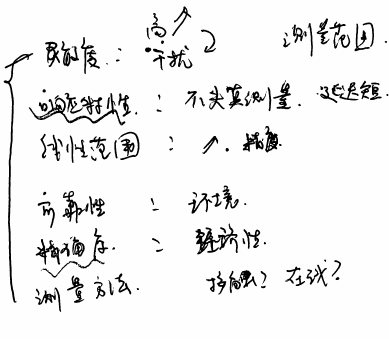 灵敏度: 高↗ 干扰 测量范围
响应特性: 不失真测量. 延迟短
线性范围: ↗. 精度
可靠性: 环境.
精确度: 经济性.
测量方法. 接触? 在线?